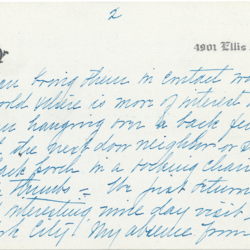 2
4901 Ellis
bring them in contact
where is more of interest
hanging over a back fence
the next door neighbor or
back forth in a rocking chair
thumbs = We just returned
interesting nine day visit
City. My absence from